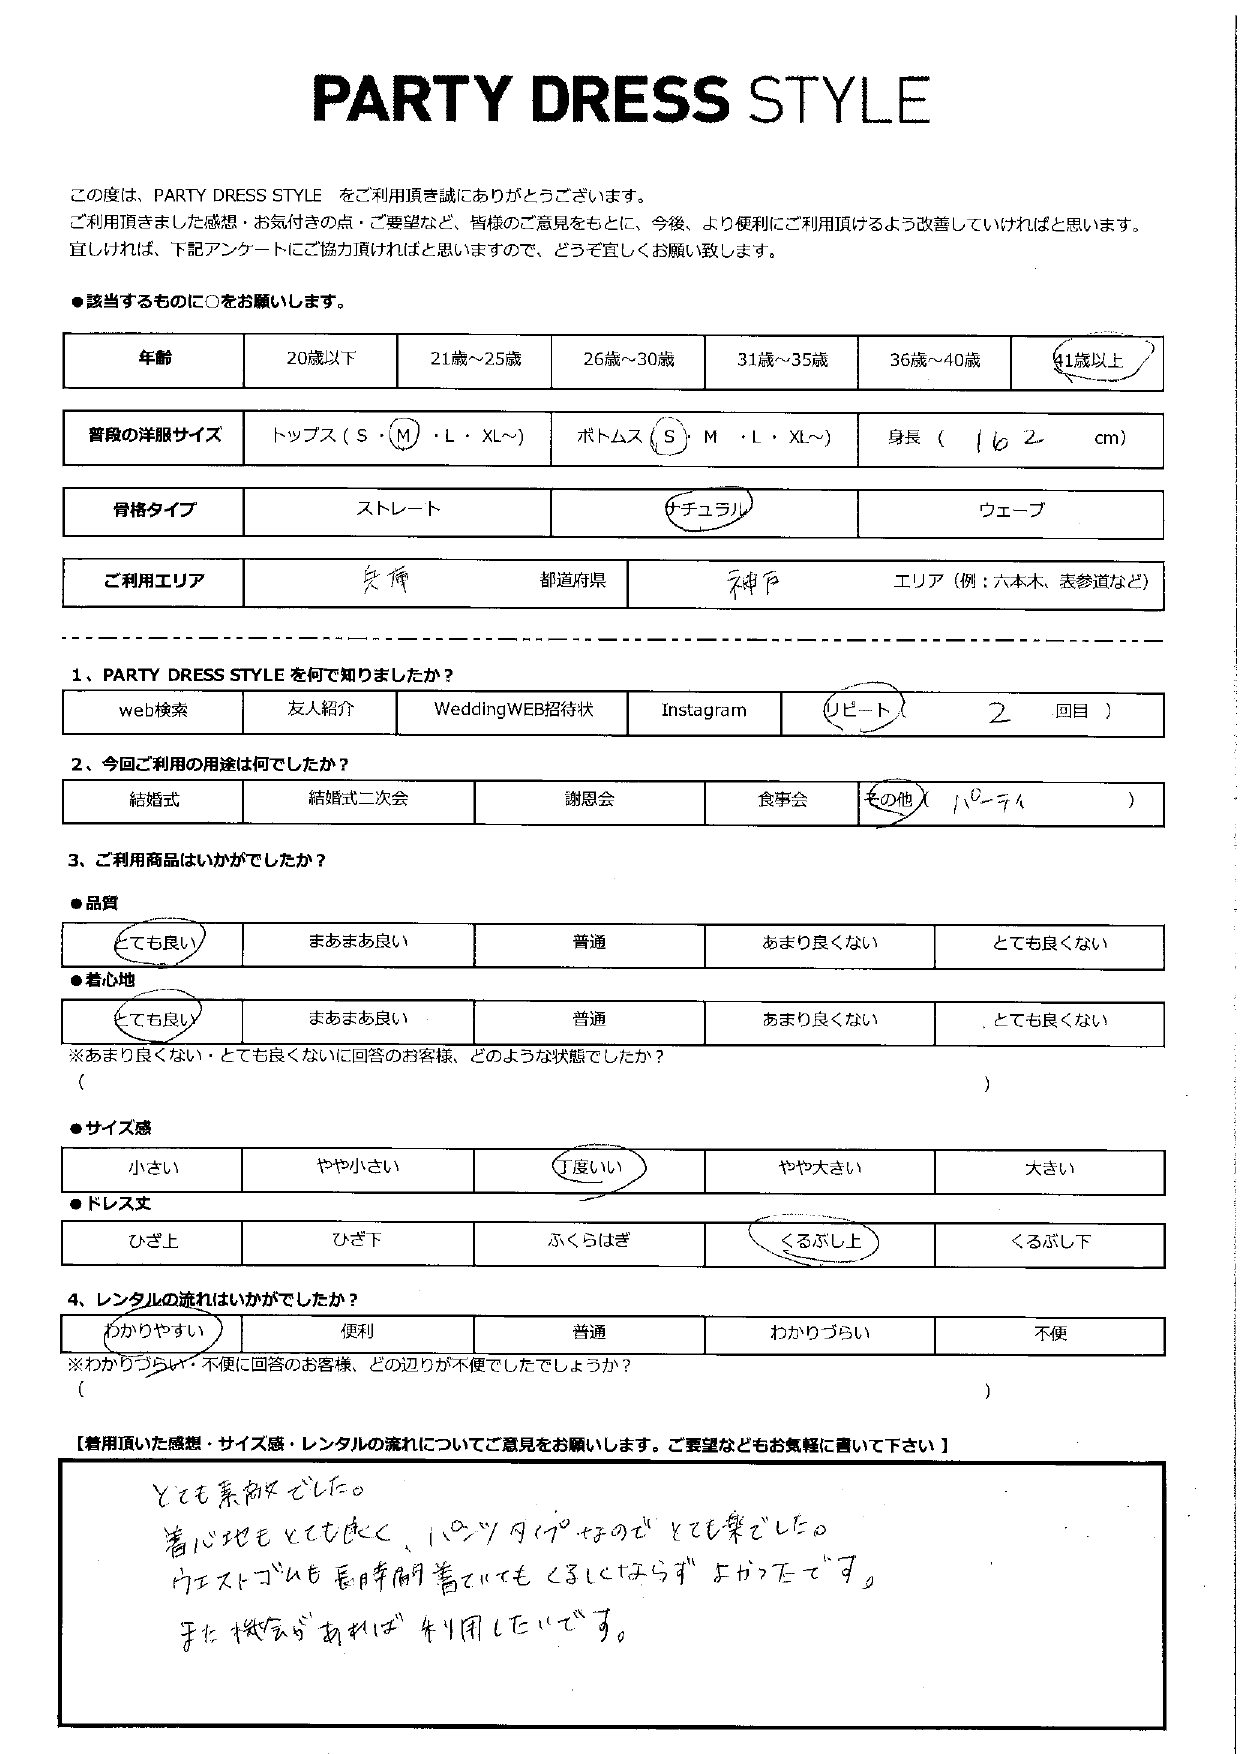 PARTY DRESS STYLE
この度は、PARTY DRESS STYLE をご利用頂き誠にありがとうございます。
ご利用頂きました感想・お気付きの点・ご要望など、皆様のご意見をもとに、今後、より便利にご利用頂けるよう改善していければと思います。
宜しければ、下記アンケートにご協力頂ければと思いますので、どうぞ宜しくお願い致します。
●該当するものに○をお願いします。
年齢 20歳以下 21歳～25歳 26歳～30歳 31歳～35歳 36歳～40歳 41歳以上
普段の洋服サイズ トップス ( S ・ M ・ L ・ XL～) ボトムス ( S ・ M ・ L ・ XL～) 身長 ( 162 cm)
骨格タイプ ストレート ナチュラル ウェーブ
ご利用エリア 兵庫 都道府県 神戸 エリア（例：六本木、表参道など）
1、PARTY DRESS STYLE を何で知りましたか？
web検索 友人紹介 WeddingWEB招待状 Instagram リピート ( 2 回目 )
2、今回ご利用の用途は何でしたか？
結婚式 結婚式二次会 謝恩会 食事会 その他 ( パーティ )
3、ご利用商品はいかがでしたか？
●品質
とても良い まあまあ良い 普通 あまり良くない とても良くない
●着心地
とても良い まあまあ良い 普通 あまり良くない とても良くない
※あまり良くない・とても良くないに回答のお客様、どのような状態でしたか？
( )
●サイズ感
小さい やや小さい 丁度いい やや大きい 大きい
●ドレス丈
ひざ上 ひざ下 ふくらはぎ くるぶし上 くるぶし下
4、レンタルの流れはいかがでしたか？
わかりやすい 便利 普通 わかりづらい 不便
※わかりづらい・不便に回答のお客様、どの辺りが不便でしたでしょうか？
( )
【着用頂いた感想・サイズ感・レンタルの流れについてご意見をお願いします。ご要望などもお気軽に書いて下さい 】
とても素敵でした。
着心地もとても良く、パンツタイプなのでとても楽でした。
ウエストゴムも長時間着ていてもくるしくならずよかったです。
また機会があれば利用したいです。